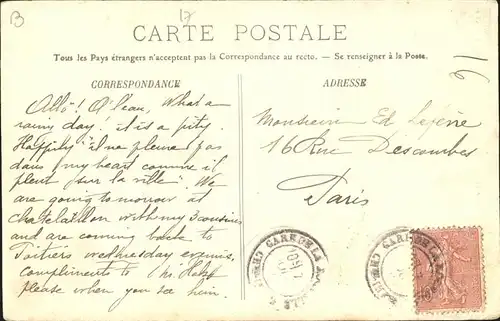 B
17
CARTE POSTALE
Tous les Pays étrangers n'acceptent pas la Correspondance au recto. — Se renseigner à la Poste.
CORRESPONDANCE
Allô! O'leau, What a
rainy day! it is a pity.
Happily "il ne pleure pas
dans my heart comme il
pleut sur la ville". We
are going tomorrow at
Chatelaillon with my 3 cousins
and are coming back to
Poitiers wednesday evening.
compliments to Mr.
Please when you see him.
ADRESSE
Monsieur Ed Lejène
16 Rue Descombes
Paris
GARE DE LA
GARE DE LA